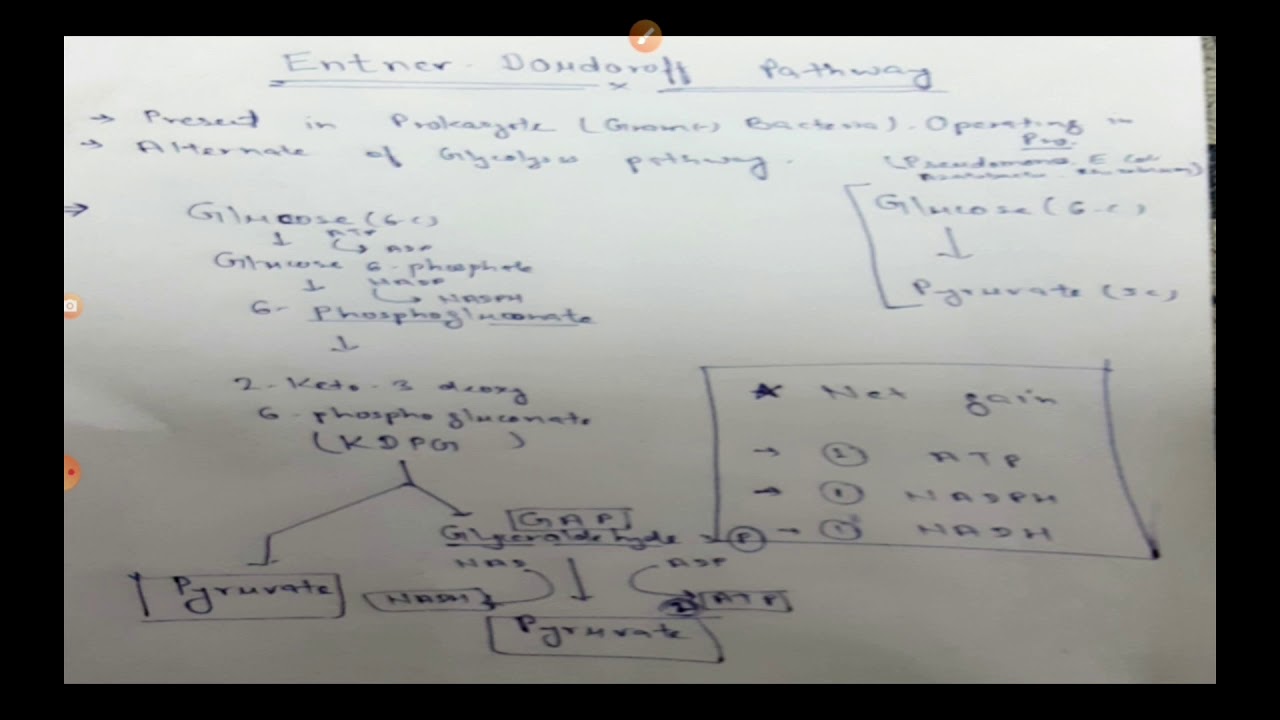 Entner-Doudoroff Pathway
→ Present in Prokaryote (Gram(-) Bacteria). Operating in
Pro.
→ Alternate of Glycolysis pathway.
(Pseudomonas, E. Coli
⇒ Glucose (6C)
↓ ATP
ADP
Glucose 6-phosphate
↓ NADP
NADPH
6-Phosphogluconate
↓
2-Keto-3 deoxy
6-phospho gluconate
(KDPG)
Pyruvate
GAP
Glyceraldehyde 3-P
NAD
NADH
ADP
2 ATP
Pyruvate
Glucose (6-C)
↓
Pyruvate (3C)
★ Net gain
→ ATP
→ 1 NADPH
→ 1 NADH